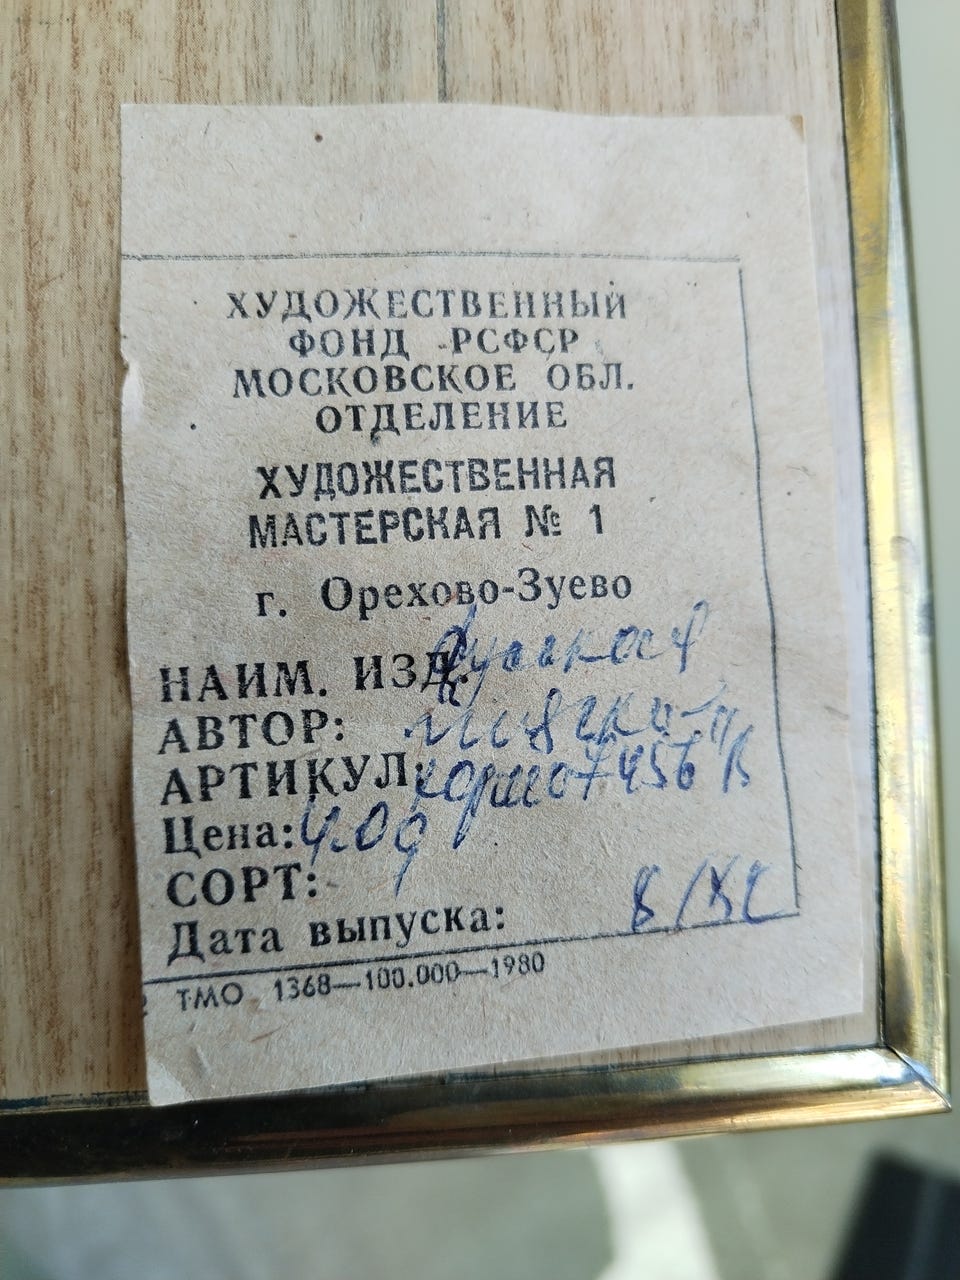 ХУДОЖЕСТВЕННЫЙ
ФОНД РСФСР
МОСКОВСКОЕ ОБЛ.
ОТДЕЛЕНИЕ
ХУДОЖЕСТВЕННАЯ
МАСТЕРСКАЯ № 1
г. Орехово-Зуево
НАИМ. ИЗД.
АВТОР:
АРТИКУЛ:
Цена:
СОРТ:
Дата выпуска:
ТМО 1368—100.000—1980